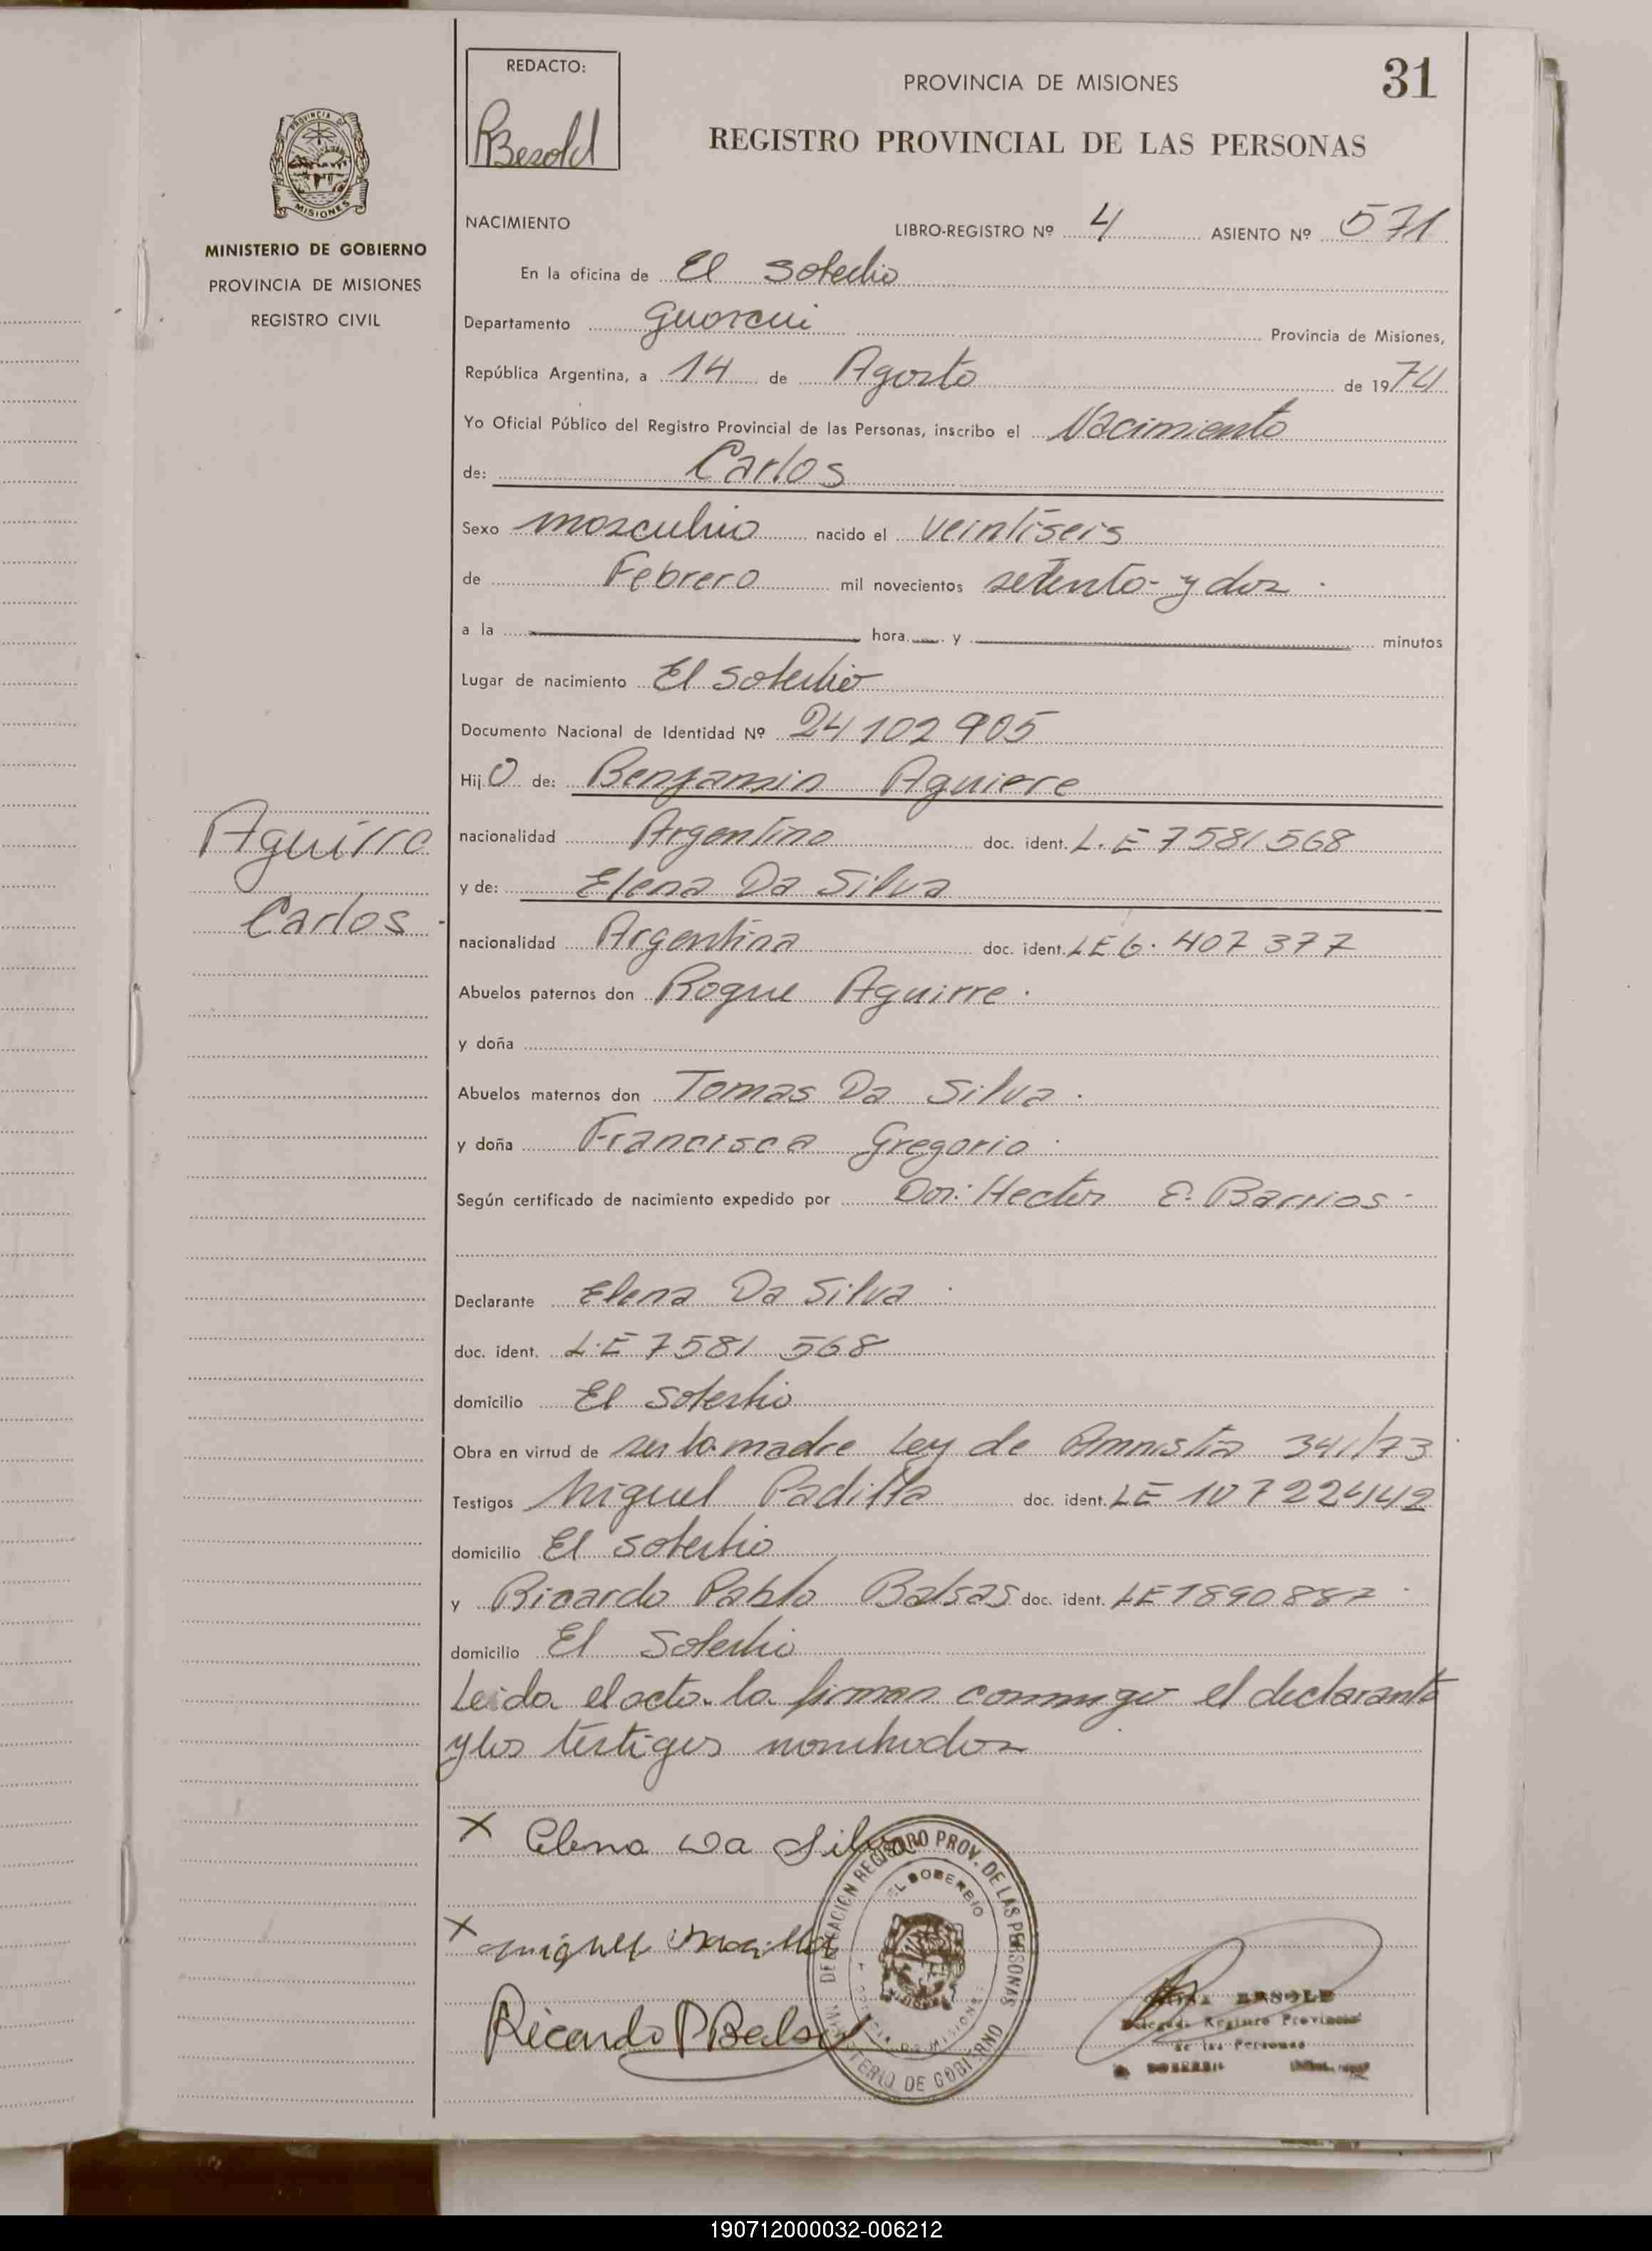 REDACTO:
RBesold
PROVINCIA DE MISIONES
31
REGISTRO PROVINCIAL DE LAS PERSONAS
PROVINCIA DE
MISIONES
MINISTERIO DE GOBIERNO
PROVINCIA DE MISIONES
REGISTRO CIVIL
NACIMIENTO LIBRO-REGISTRO Nº 4 ASIENTO Nº 571
En la oficina de El Soberbio
Departamento Guarani Provincia de Misiones,
República Argentina, a 14 de Agosto de 1974
Yo Oficial Público del Registro Provincial de las Personas, inscribo el Nacimiento
de: Carlos
Sexo masculino nacido el veintiseis
de Febrero mil novecientos setenta y dos
a la hora y minutos
Lugar de nacimiento El Soberbio
Documento Nacional de Identidad Nº 24102905
Hijo de: Benjamin Aguirre
Aguirre
Carlos
nacionalidad Argentino doc. ident. L.E 7581568
y de: Elena Da Silva
nacionalidad Argentina doc. ident. LE 6.407377
Abuelos paternos don Roque Aguirre.
y doña
Abuelos maternos don Tomas Da Silva.
y doña Francisca Gregorio
Según certificado de nacimiento expedido por Dor: Hector E. Barrios
Declarante Elena Da Silva
doc. ident. L.E 7581 568
domicilio El Soberbio
Obra en virtud de ser la madre Ley de Amnistia 341/73
Testigos Miguel Padilla doc. ident. LE 10722442
domicilio El Soberbio
y Ricardo Pablo Balsas doc. ident. LE 1890887
domicilio El Soberbio
Leida el acta la firman conmigo el declarante
y los testigos nombrados
x Elena Da Silva
x Miguel
Ricardo P Balsa
DELEGACION REGISTRO PROV. DE LAS PERSONAS
EL SOBERBIO
MISIONES
PROVINCIA DE MISIONES
MINISTERIO DE GOBIERNO
Delegada Registro Provincial
de las Personas
190712000032-006212